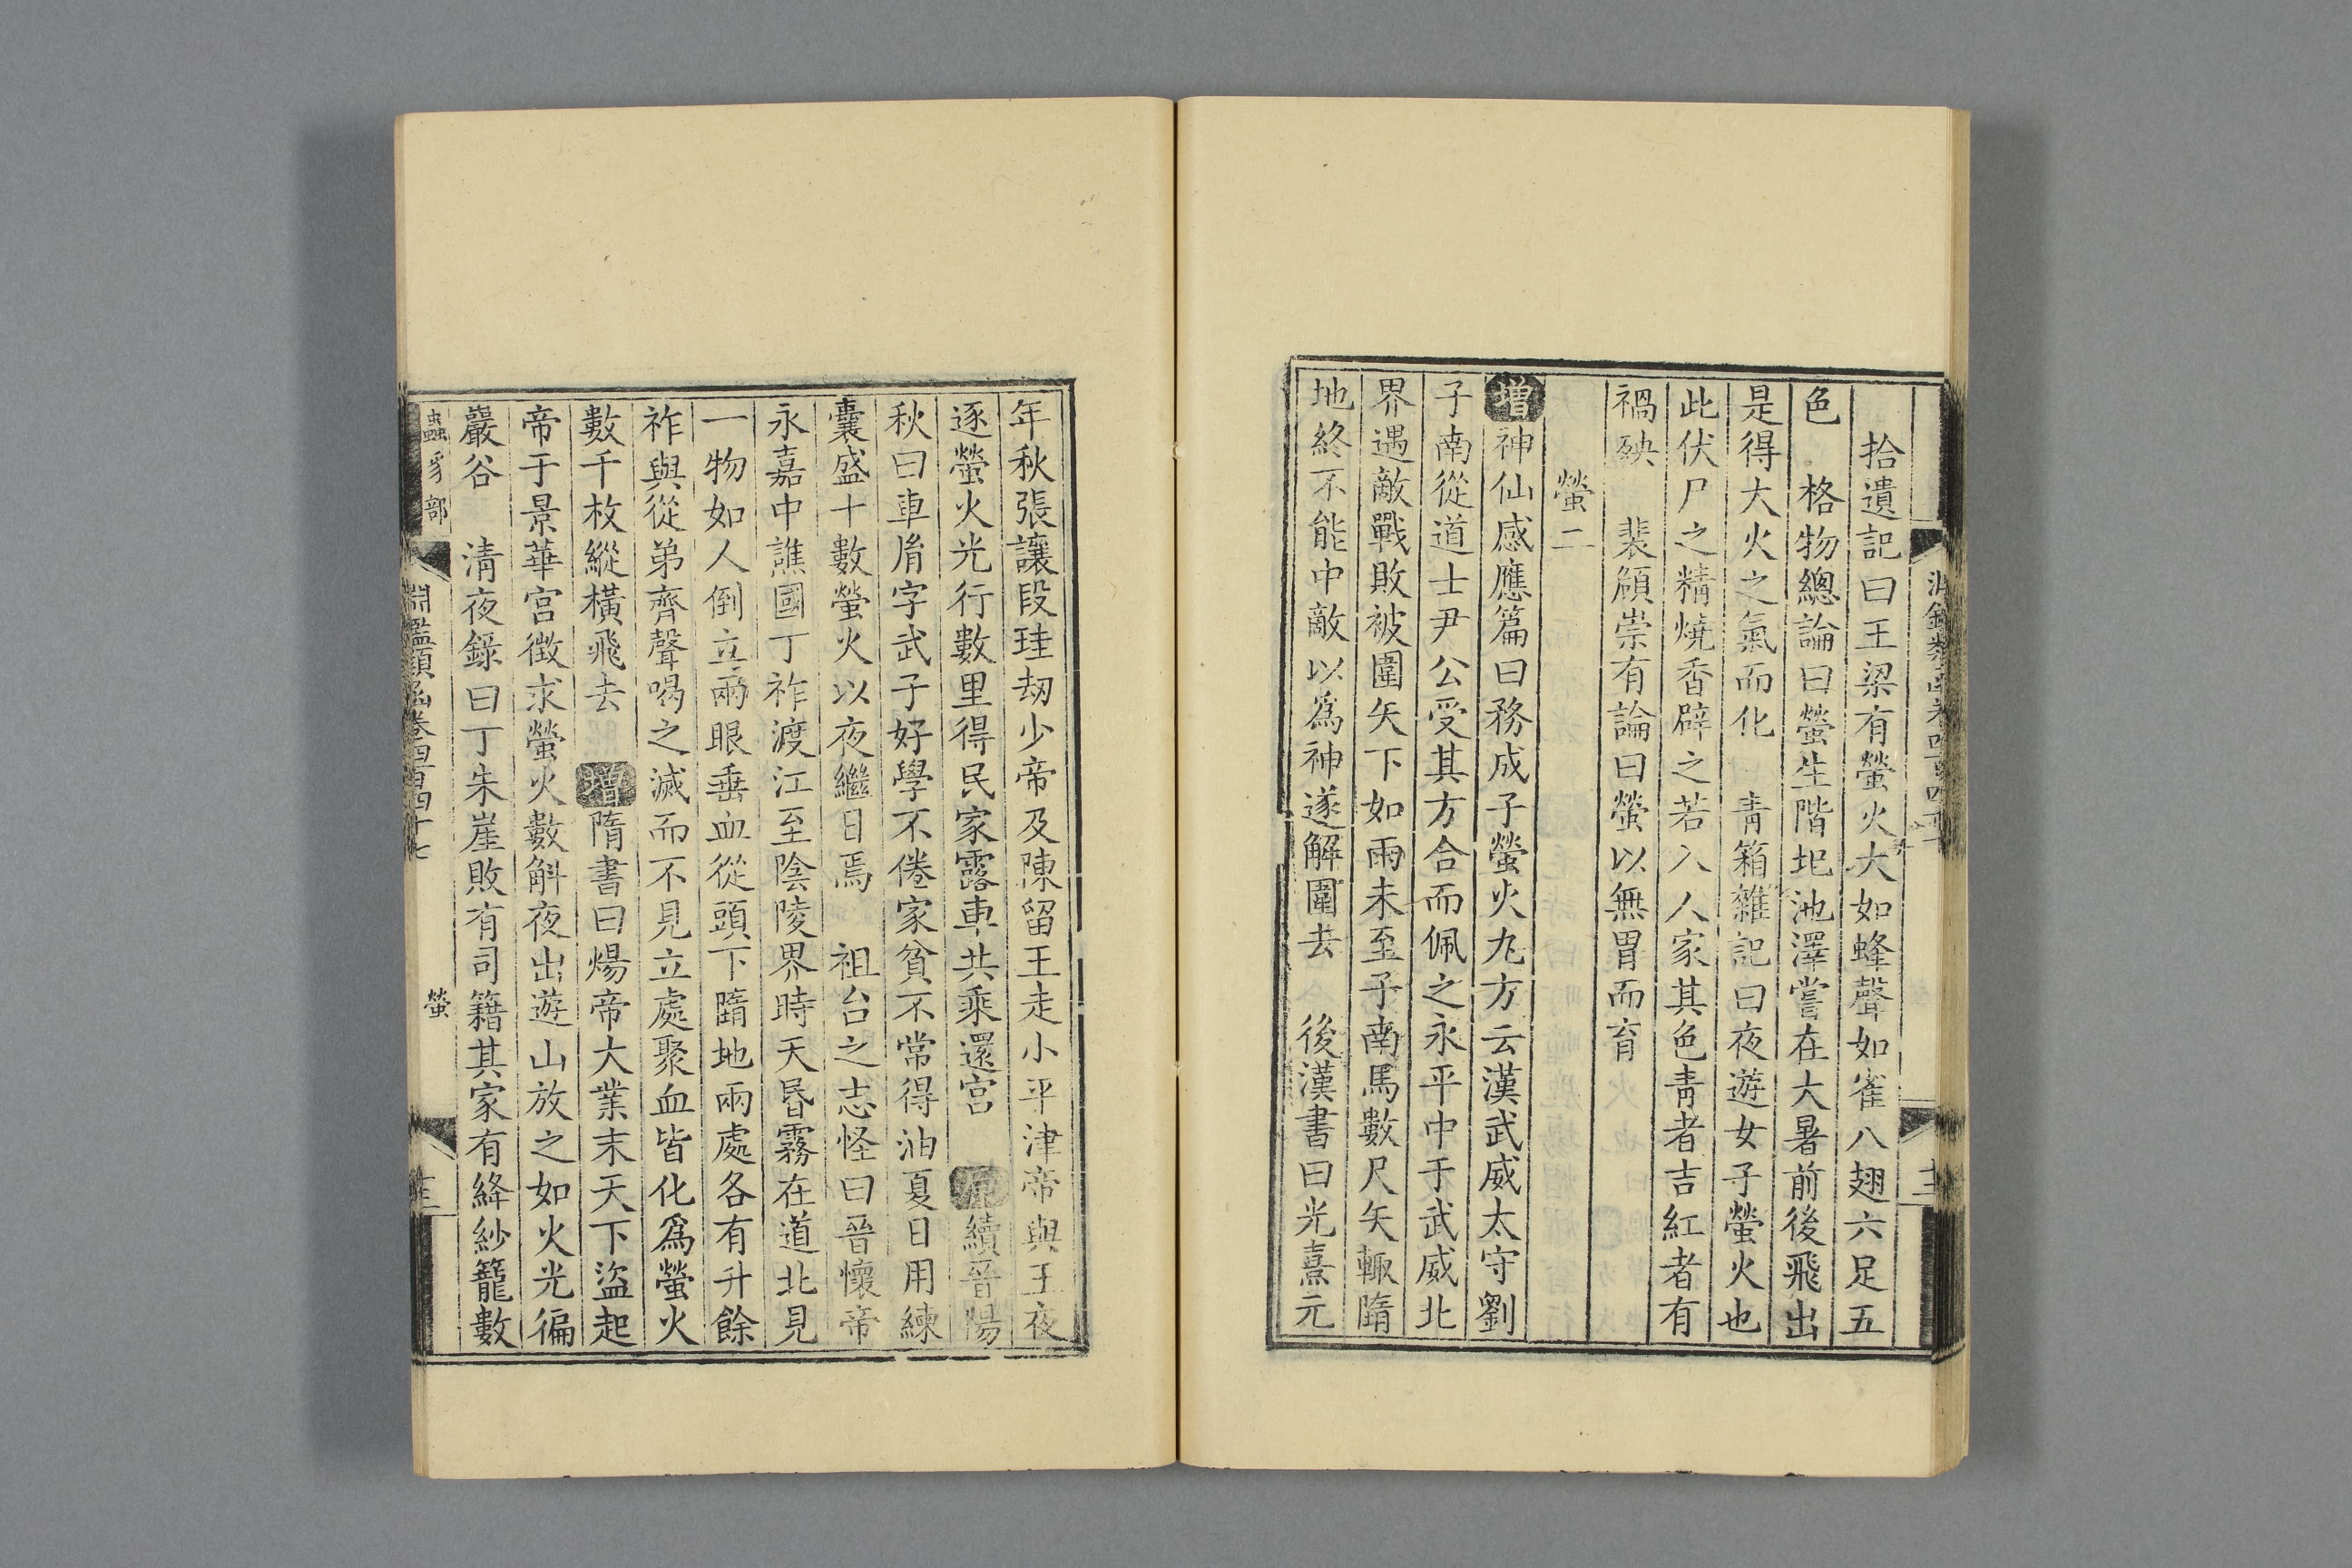 拾遺記曰王梁有螢火大如蜂聲如雀八翅六足五
色　格物總論曰螢生階圯池澤嘗在大暑前後飛出
是得大火之氣而化　青箱雜記曰夜遊女子螢火也
此伏尸之精燒香辟之若入人家其色青者吉紅者有
禍殃　裴頠崇有論曰螢以無胃而育
螢二
增神仙感應篇曰務成子螢火丸方云漢武威太守劉
子南從道士尹公受其方合而佩之永平中于武威北
界遇敵戰敗被圍矢下如雨未至子南馬數尺矢輙墮
地終不能中敵以爲神遂解圍去　後漢書曰光熹元
年秋張讓段珪刼少帝及陳留王走小平津帝與王夜
逐螢火光行數里得民家露車共乘還宮　原續晉陽
秋曰車胤字武子好學不倦家貧不常得油夏日用練
囊盛十數螢火以夜繼日焉　祖台之志怪曰晉懷帝
永嘉中譙國丁祚渡江至陰陵界時天昬霧在道北見
一物如人倒立兩眼垂血從頭下墮地兩處各有升餘
祚與從弟齊聲喝之滅而不見立處聚血皆化爲螢火
數千枚縱橫飛去　增隋書曰煬帝大業末天下盜起
帝于景華宮徵求螢火數斛夜出遊山放之如火光徧
巖谷　清夜錄曰丁朱崖敗有司籍其家有絳紗籠數
蟲豸部
淵鑑類函卷四百四十七
螢